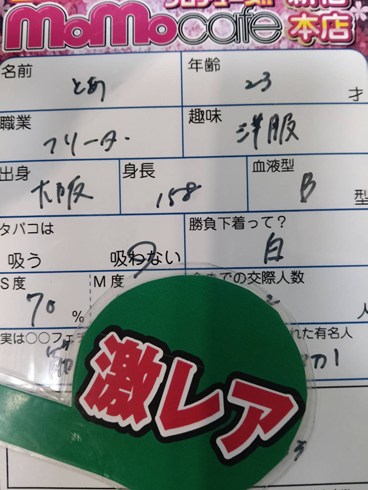 本店
MoMo cafe
名前 とあ 年齢 23 才
職業 フリーター 趣味 洋服
出身 大阪 身長 158 血液型 B 型
タバコは 吸う 吸わない 勝負下着って? 白
S度 70 % M度 までの交際人数 人
実は○○フェチ れた有名人
激レア